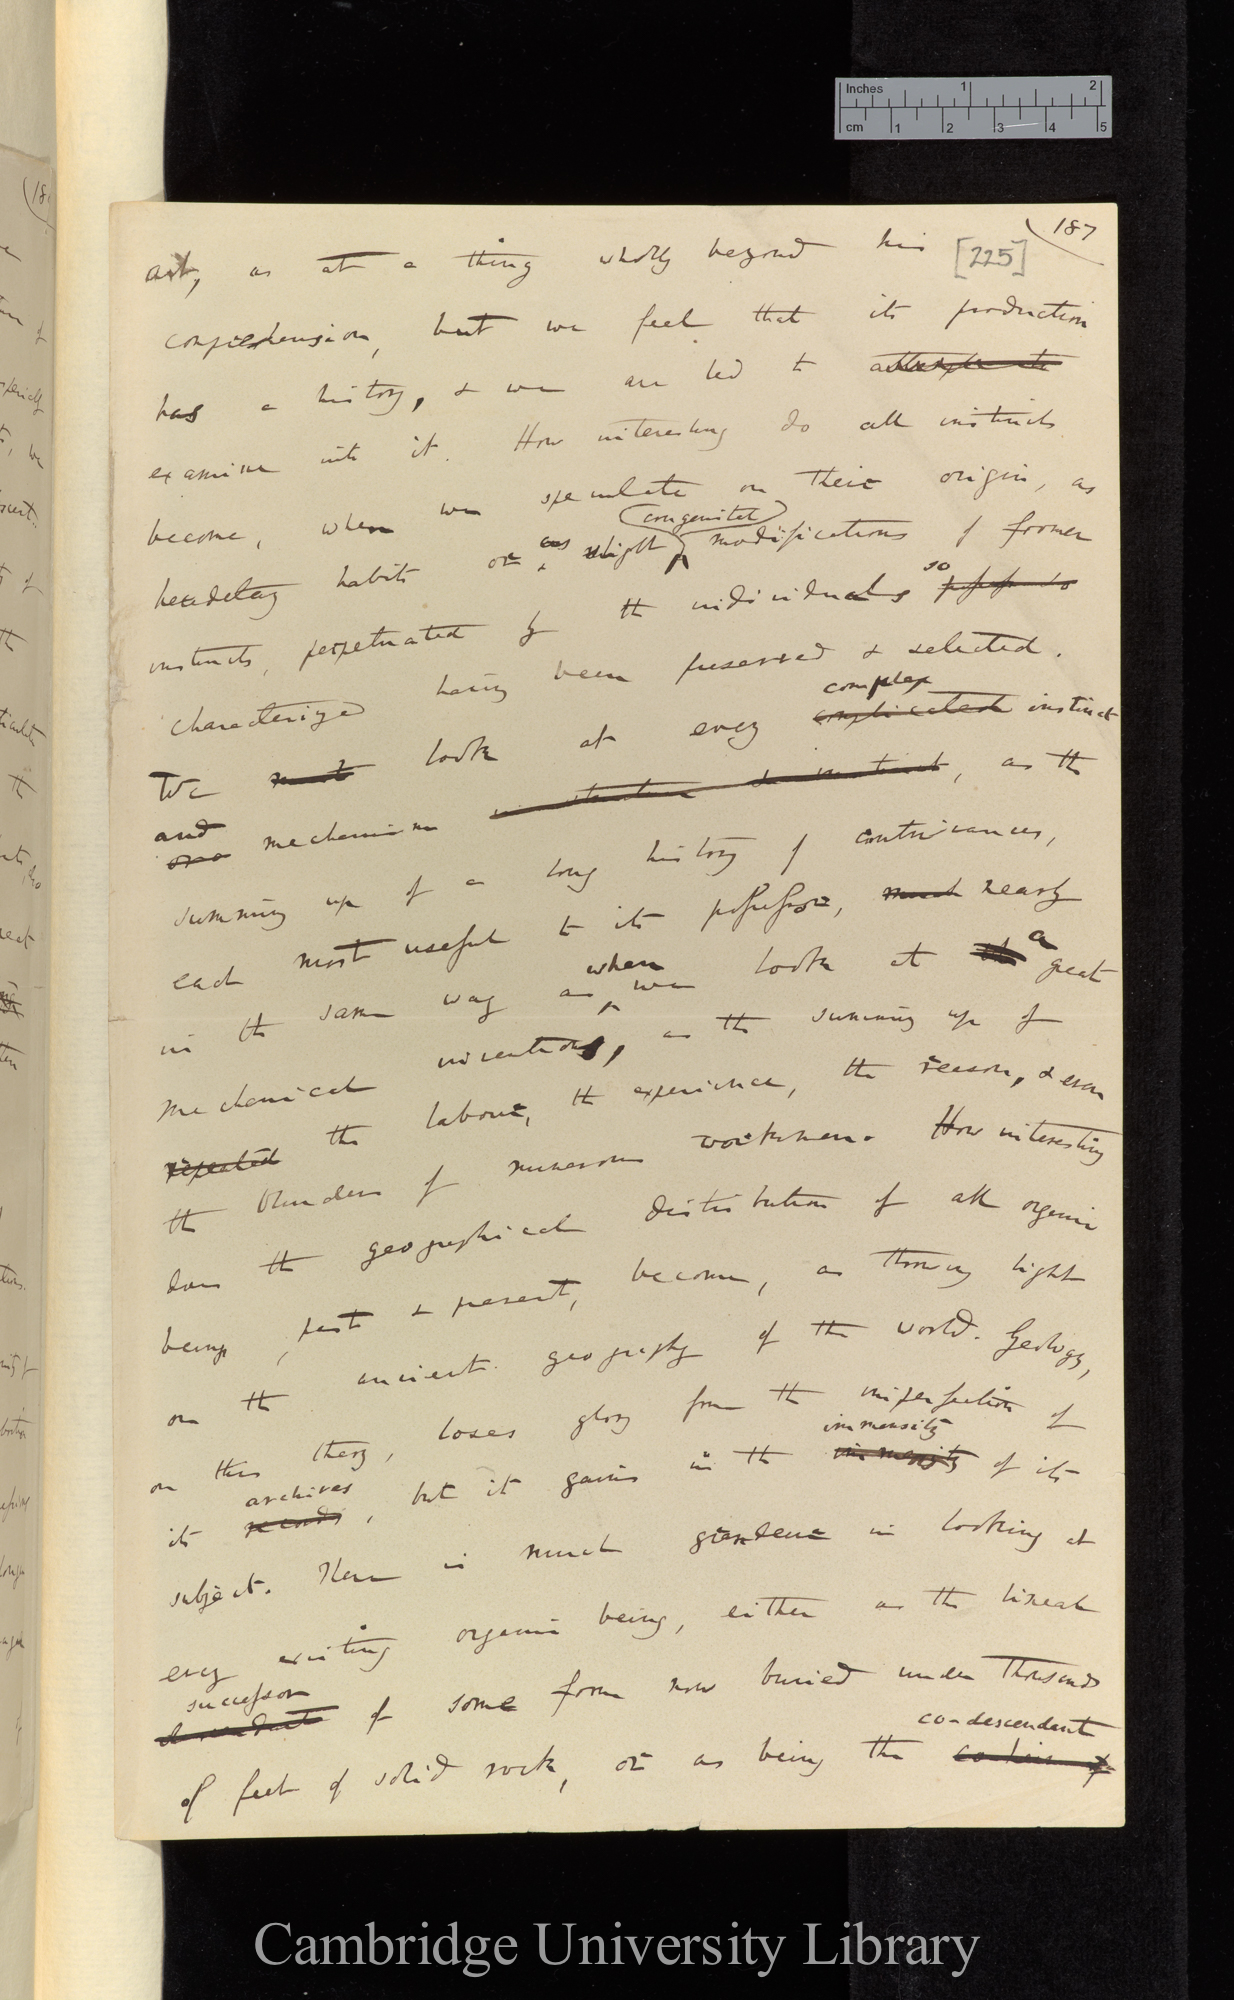 Inches 1 2
cm 1 2 3 4 5
187
[225]
art, as at a thing wholly beyond his
comprehension, but we feel that its production
has a history, & we are led to
examine into it. How interesting do all instincts
become, when we speculate on their origin, as
congenital
hereditary habits or as slight modifications of former
so
instincts, perpetuated by the individuals possess so
characterized having been preserved & selected.
complex
We must look at every complicated instinct
and
mechanism in structure & in instinct, as the
summing up of a long history of contrivances,
each most useful to its possessor, much nearly
when a
in the same way as we look at the great
mechanical inventions, as the summing up of
repeated the labour, the experience, the reason, & even
the blunders of numerous workmen. How interesting
does the geographical distribution of all organic
beings, past & present, become, as throwing light
on the ancient geography of the world. Geology,
on this theory, loses glory from the imperfection of
archives immensity
its records, but it gains in the immensity of its
subject. There is much grandeur in looking at
every existing organic being, either as the lineal
successor
descendant of some form now buried under thousands
co-descendent
of feet of solid rock, or as being the co-heir of
Cambridge University Library